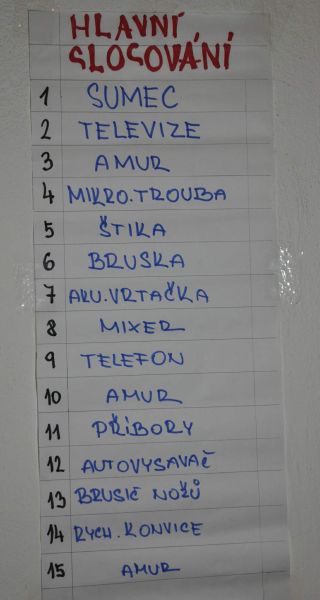 HLAVNÍ
SLOSOVÁNÍ
1 SUMEC
2 TELEVIZE
3 AMUR
4 MIKRO.TROUBA
5 ŠTIKA
6 BRUSKA
7 AKU.VRTAČKA
8 MIXER
9 TELEFON
10 AMUR
11 PŘÍBORY
12 AUTOVYSAVAČ
13 BRUSIČ NOŽŮ
14 RYCH. KONVICE
15 AMUR